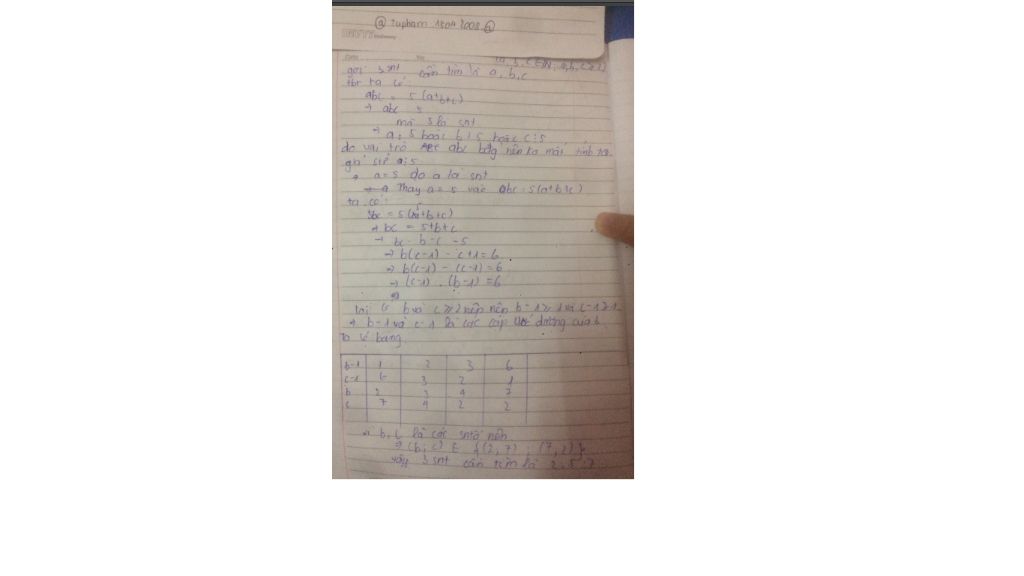 @ tupham
gọi 3 snt cần tìm là a, b, c
tbr ta có:
abc = 5(a+b+c)
→ abc 5
mà 5 là snt
→ a ⋮ 5 hoặc b ⋮ 5 hoặc c ⋮ 5
do vai trò abc bằng nên ko mất tính
giả sử a ⋮ 5
→ a = 5 do a là snt
→ thay a = 5 vào abc = 5(a+b+c)
ta có:
5bc = 5(5+b+c)
→ bc = 5+b+c
→ bc - b - c = 5
→ b(c-1) - c+1 = 6
→ b(c-1) - (c-1) = 6
→ (c-1) . (b-1) = 6
b và c ≥ 2 nên b-1 ≥ 1 và c-1 ≥ 1
→ b-1 và c-1 là các cặp ước dương của 6
Ta có bảng
b-1 1 2 3 6
c-1 6 3 2 1
b 2 3 4 7
c 7 4 2 2
→ b, c là các snt nên
→ (b, c) ∈ {(2, 7) ; (7, 2)}
vậy 3 snt cần tìm là 2, 5, 7